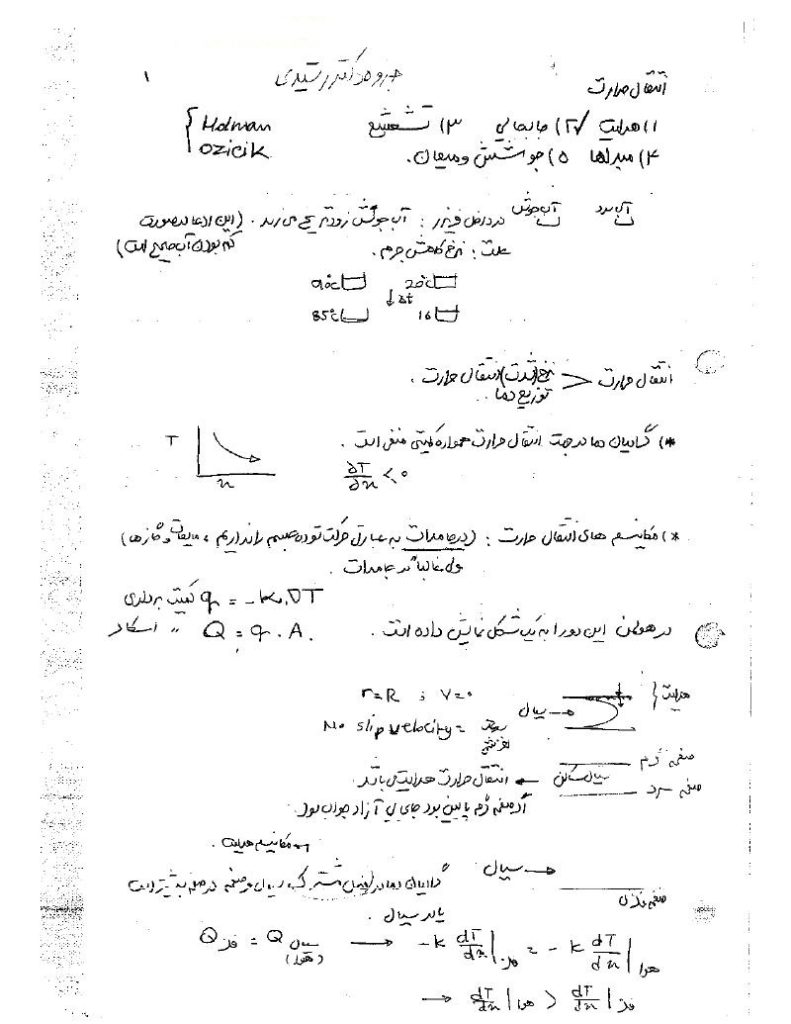 جزوه دکتر رشیدی
۱
انتقال حرارت
۱) هدایت ۲) جابجایی ۳) تشعشع
Holman
۴) مبدلها ۵) جوشش و میعان.
Ozicik
آب سرد آب جوش در داخل فریزر : آب جوش زودتر یخ می زند. (این ادعا در صورت
کم بودن آب صحیح است)
علت : نرخ کاهش جرم.
90°c 20°c
↓ Δt
85°c 16
انتقال حرارت < نرخ (شدت) انتقال حرارت.
توزیع دما.
*) گرادیان دما در جهت انتقال حرارت همواره کمیتی منفی است.
T
x
∂T/∂x < 0
*) مکانیسم های انتقال حرارت : (در جامدات به عبارتی حرکت توده جسم را نداریم ، مایعات و گازها)
ولی غالباً در جامدات.
q = -k.∇T کمیت برداری
در هولمن این دو را به یک شکل نمایش داده است. Q = q.A. " اسکالر
هدایت
r=R ; V=0
سیال →
No slip velocity = سرعت لغزشی
صفحه گرم
سیال ساکن ← انتقال حرارت هدایت می باشد.
صفحه سرد
اگر صفحه گرم پایین بود جابجایی آزاد خواهد بود.
← مکانیسم هدایت.
سیال →
صفحه فلزی
گرادیان دما در فصل مشترک سیال و صفحه در صفحه بیشتر است
یا در سیال.
Q فلز = Q سیال (هوا) → -k dT/dx | فلز = -k dT/dx | هوا
→ dT/dx | هوا > dT/dx | فلز